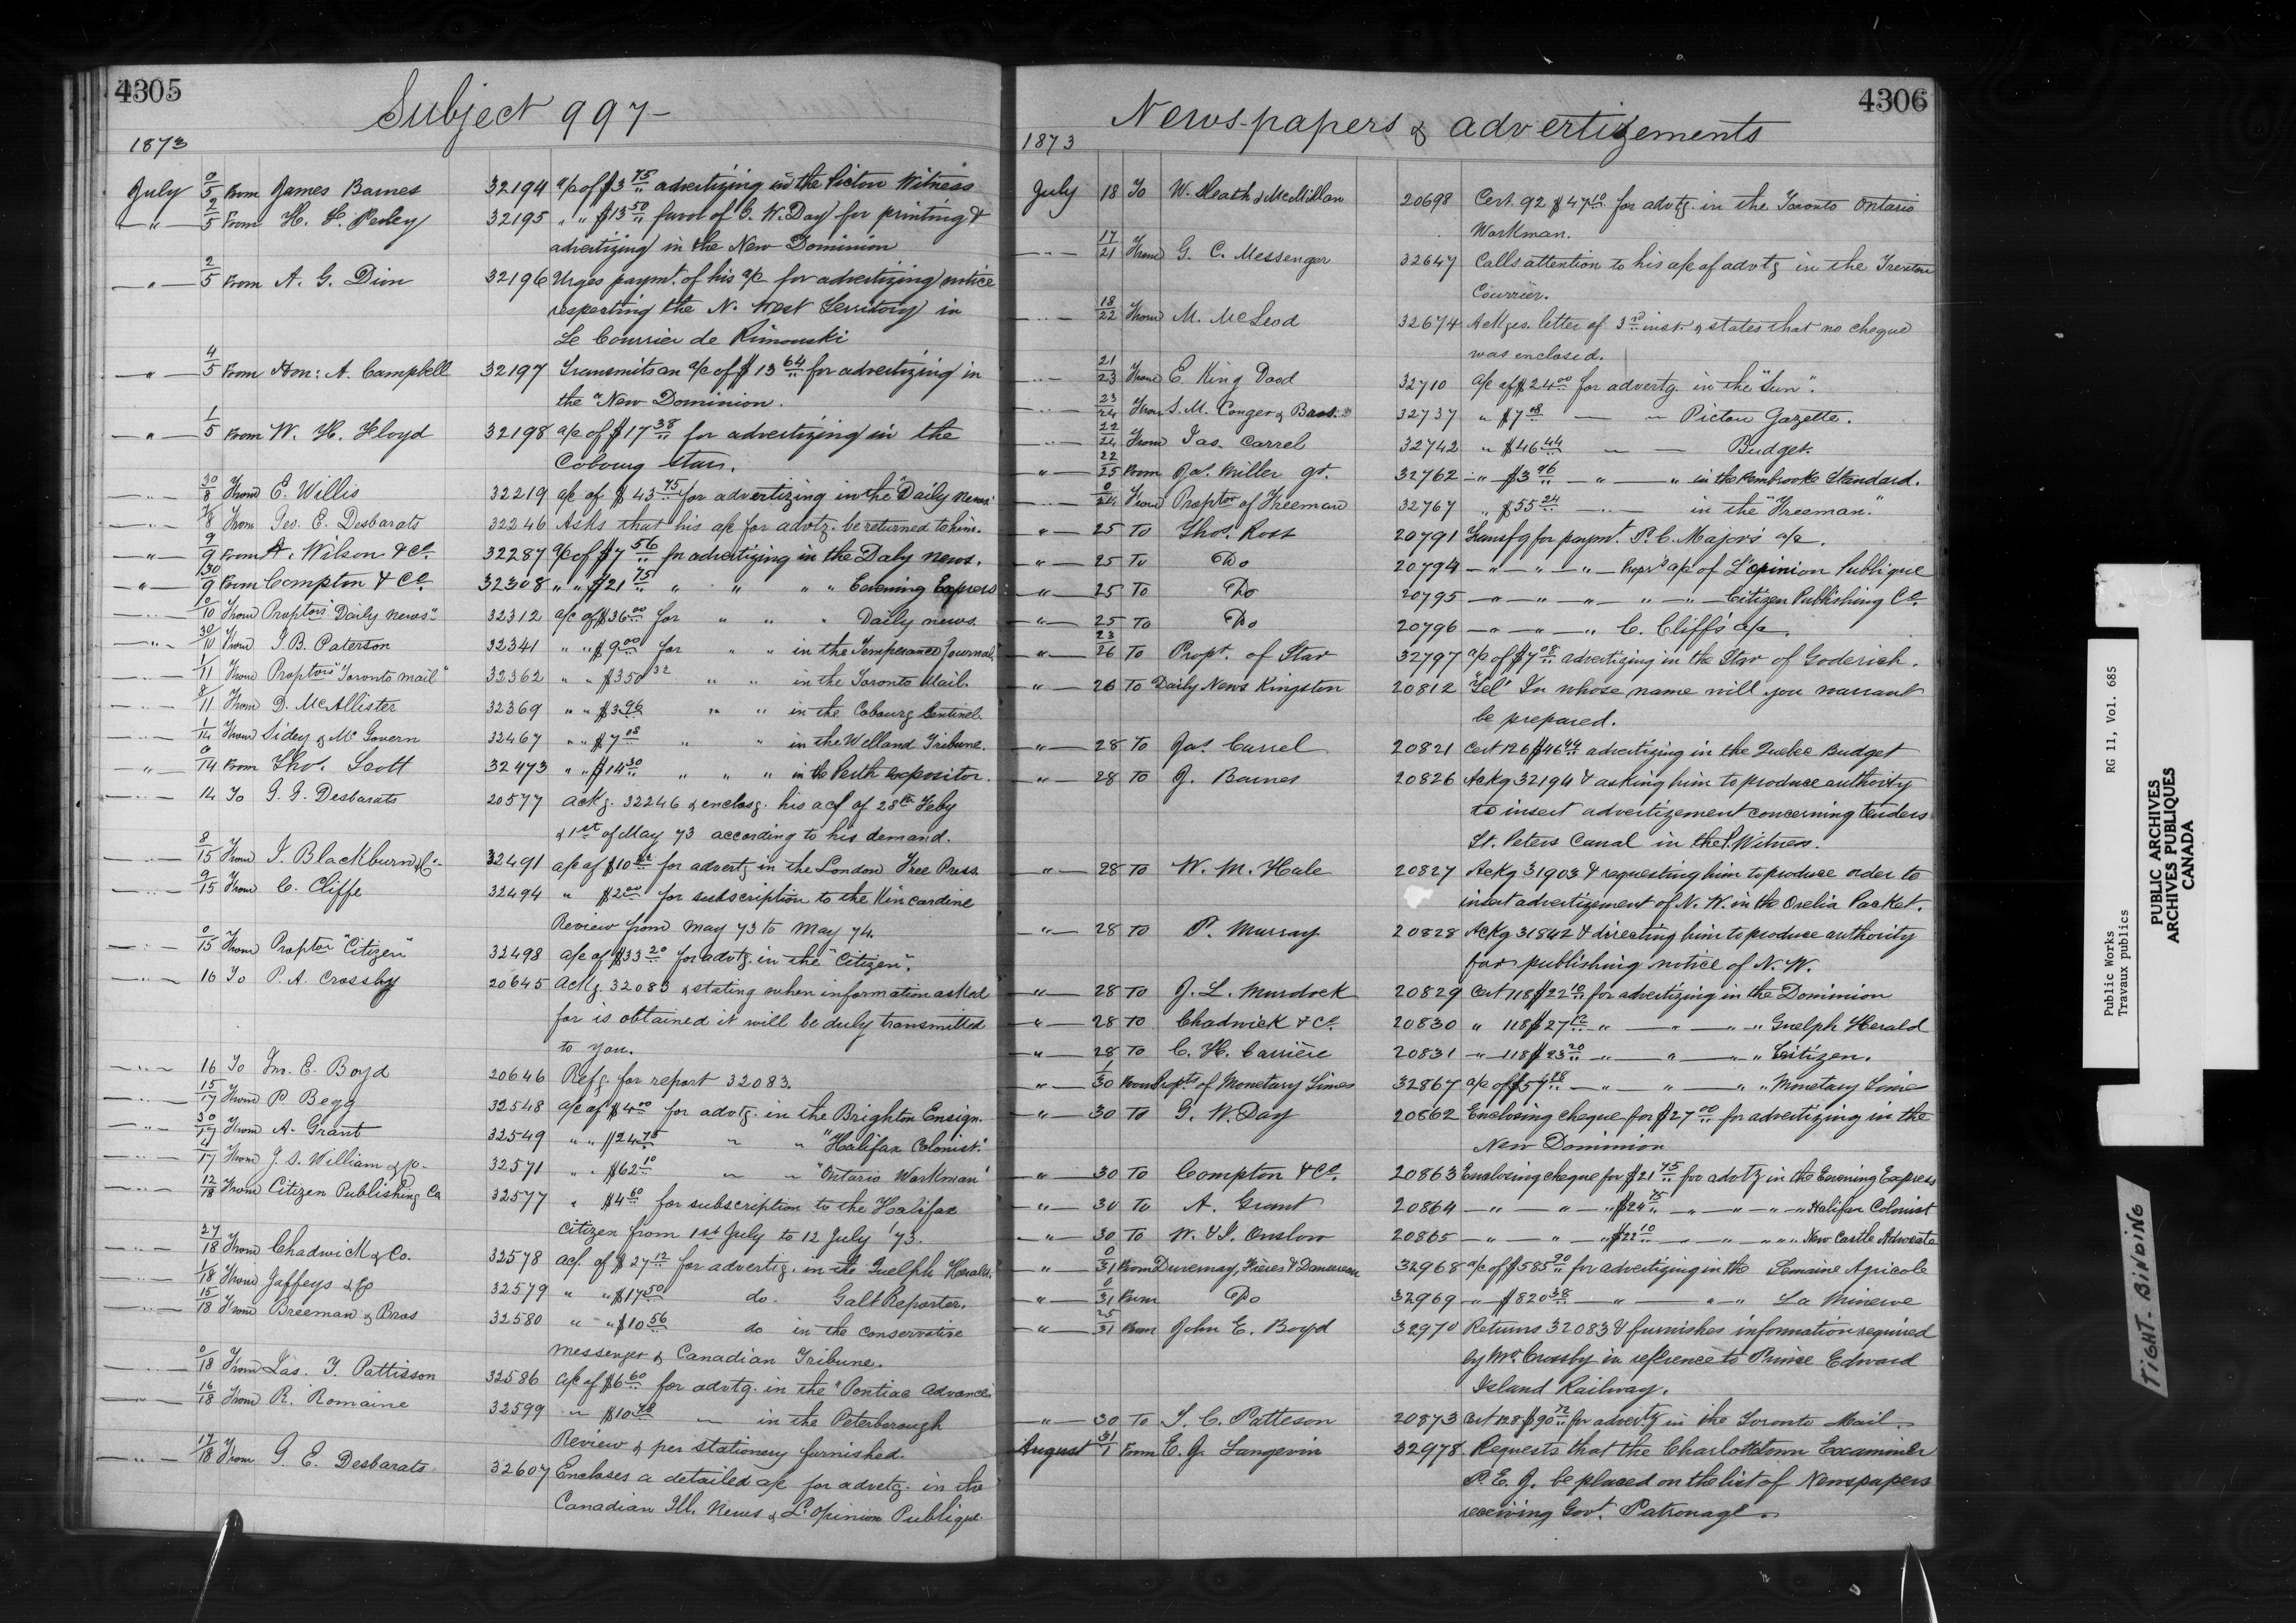 4305
Subject 997-
1873
July 0/5 From James Barnes 32194 a/c of $3 75 advertizing in the Pictou Witness
" 2/5 From H. F. Perley 32195 " " $13 50 favor of G. W. Day for printing &
advertizing in the New Dominion
" 2/5 From A. G. Dion 32196 Urges paymt. of his a/c for advertizing notice
respecting the N. West Territory in
Le Courrier de Rimouski
" 4/5 From Hon: A. Campbell 32197 Transmits an a/c of $13 64 for advertizing in
the "New Dominion.
" 1/5 From W. H. Floyd 32198 a/c of $17 38 for advertizing in the
Cobourg Star.
" 30/8 From E. Willis 32219 a/c of $43 75 for advertizing in the "Daily News"
" 7/8 From Geo. E. Desbarats 32246 Asks that his a/c for advtz. be returned to him.
" 9/9 From A. Wilson & Co. 32287 a/c of $7 56 for advertizing in the Daly News.
" 30/9 From Compton & Co. 32308 " " $21 75 " " " " Evening Express
" 0/10 From Proptors "Daily News" 32312 a/c of $36 00 for " " " Daily News
" 30/10 From J. B. Paterson 32341 " " $9 00 for " " in the Temperance Journal"
" 1/11 From Proptors "Toronto Mail" 32362 " " $350 32 " " in the Toronto Mail.
" 8/11 From D. McAllister 32369 " " $3 96 " " in the Cobourg Sentinel.
" 1/14 From Sidey & McGovern 32467 " " $7 08 " " in the Welland Tribune.
" 0/14 From Thos. Scott 32473 " " $14 30 " " " in the Perth Expositor.
" 14 To G. E. Desbarats 20577 Ackg. 32246 & enclosg. his acf of 28th Feby
& 1st of May 73 according to his demand.
" 8/15 From J. Blackburn & Co. 32491 a/c of $10 for advertg in the London Free Press
" 9/15 From C. Cliffe 32494 " $2 00 for subscription to the Kincardine
Review from May 73 to May 74.
" 0/15 From Proptor "Citizen" 32498 a/c of $33 20 for advtg. in the "Citizen".
" 16 To P. A. Crossby 20645 Ackg. 32083 & stating when information asked
for is obtained it will be duly transmitted
to you.
" 16 To Jno. E. Boyd 20646 Refg. for report 32083.
" 15/17 From P. Begg 32548 a/c of $4 00 for advtg. in the Brighton Ensign.
" 30/17 From A. Grant 32549 " " $24 75 " " "Halifax Colonist."
" 4/17 From J. S. William & Co. 32571 " " $62 10 " " "Ontario Workman"
" 12/18 From Citizen Publishing Co 32577 " $4 60 for subscription to the Halifax
Citizen from 1st July to 12 July '73.
" 27/18 From Chadwick & Co. 32578 acf. of $27 12 for advertig. in the Guelph Herald"
" 1/18 From Jaffeys & Co 32579 " " $17 50 do. Galt Reporter.
" 15/18 From Breeman & Bros 32580 " " $10 56 do in the Conservative
Messenger & Canadian Tribune.
" 0/18 From Jas. T. Pattisson 32586 a/c of $6 60 for advtg. in the "Pontiac Advance"
" 16/18 From R. Romaine 32599 " $10 48 " in the Peterborough
Review & per stationery furnished.
" 17/18 From G. E. Desbarats 32607 Encloses a detailed a/c for advetg. in the
Canadian Ill. News & L'Opinion Publique
4306
Newspapers & advertizements
1873
July 18 To W. Heath & McMillan 20698 Cert. 92 $47 10 for advtg. in the Toronto Ontario
Workman.
" 17/21 From G. C. Messenger 32647 Calls attention to his a/c of advtg in the Trenton
Courrier.
" 18/22 From M. McLeod 32674 Ackges. letter of 3rd inst. & states that no cheque
was enclosed.
" 21/23 From E. King Dodd 32710 a/c of $24 00 for advertg. in the "Sun".
" 23/24 From S. M. Conger & Bros. 32737 " $7 08 " Picton Gazette.
" 22/24 From Jas. Carrel 32742 " $46 44 " Budget.
" 22/25 From Jas. Miller gt. 32762 " $3 96 " " in the Pembrooke Standard.
" 0/24 From Proptor of Freeman 32767 " $55 24 " in the "Freeman."
" 25 To Thos. Ross 20791 Transfg for paymt. P. C. Major's a/c.
" 25 To Do 20794 " " " Propr's a/c of L'opinion Publique
" 25 To Do 20795 " " " " " Citizen Publishing Co.
" 25 To Do 20796 " " " C. Cliff's a/c.
" 23/26 To Propr. of Star 32797 a/c of $7 08 advertizing in the Star of Goderich.
" 26 To Daily News Kingston 20812 "Tel" In whose name will you warrant
be prepared.
" 28 To Jas. Carrel 20821 Cert 126 $46 44 advertizing in the Quebec Budget
" 28 To J. Barnes 20826 Ackg 32194 & asking him to produce authority
to insert advertizement concerning tenders
St. Peters Canal in the P. Witness.
" 28 To W. M. Hale 20827 Ackg 31903 & requesting him to produce order to
insert advertizement of N. W. in the Orelia Packet.
" 28 To P. Murray 20828 Ackg 31842 & directing him to produce authority
for publishing notice of N. W.
" 28 To J. L. Murdock 20829 Cert 118 $22 10 for advertizing in the Dominion
" 28 To Chadwick & Co. 20830 " 118 $27 12 " " " " Guelph Herald
" 28 To C. H. Carrière 20831 " 118 $23 20 " " " " Citizen.
" 1/30 From Proptr of Monetary Times 32867 a/c of $57 " " " " Monetary Time
" 30 To G. W. Day 20862 Enclosing cheque for $27 00 for advertizing in the
New Dominion
" 30 To Compton & Co. 20863 Enclosing cheque for $21 75 for advtg in the Evening Express
" 30 To A. Grant 20864 " " " $24 75 " " " " Halifax Colonist
" 30 To W. & J. Onslow 20865 " " " $22 10 " " " " New Castle Advocate
" 0/31 From Duvernay, Frères & Dansereau 32968 a/c of $585 90 for advertizing in the Semaine Agricole
" 0/31 From Do 32969 " $820 38 " " " La Minerve
" 25/31 From John E. Boyd 32970 Returns 32083 & furnishes information required
by Mr. Crossby in reference to Prince Edward
Island Railway.
" 30 To T. C. Patteson 20873 Cert 128 $90 72 for advertg in the Toronto Mail.
August 31/1 From E. J. Langevin 32978 Requests that the Charlottetown Examiner
P. E. J. be placed on the list of Newspapers
receiving Govt. Patronage.
Public Works
Travaux publics
RG 11, Vol. 685
PUBLIC ARCHIVES
ARCHIVES PUBLIQUES
CANADA
TIGHT BINDING